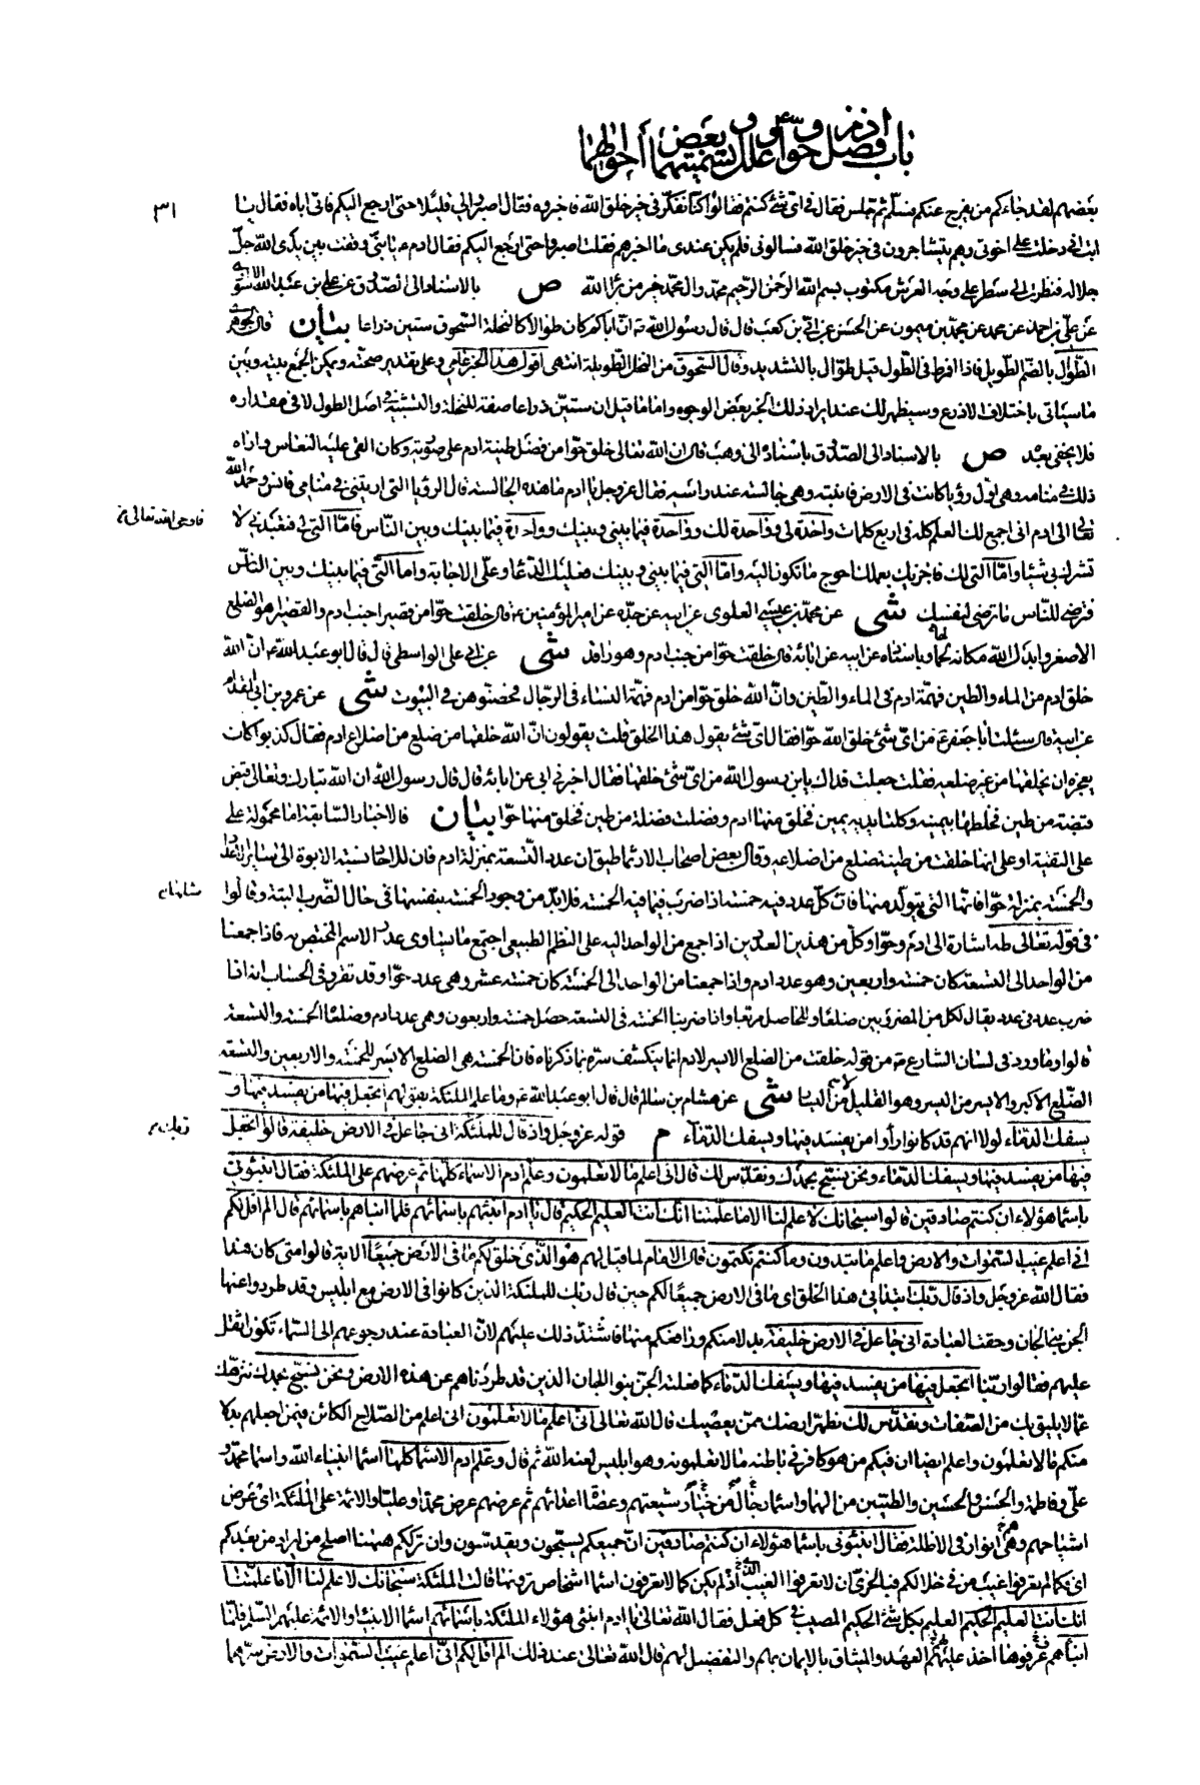 باب فضل آدم وحوّاء وعلل تسميتهما وبعض أحوالهما
٣١
بعضهم لقد جاءكم من يفرج عنكم فسلّم ثم جلس فقال في اي شئ كنتم فقالوا كنا نفكّر في خير خلق الله فاخبروه فقال اصبروا لي قليلا حتى ارجع اليكم فاتى اباه فقال يا
ابت اني دخلت على اخوتي وهم يتشاجرون في خير خلق الله فسالوني فلم يكن عندي ما اخبرهم فقلت اصبروا حتى ارجع اليكم فقال ادم ع يا بنيّ وقفت بين يدي الله جلّ
جلاله فنظرت الى سطر على وجه العرش مكتوب بسم الله الرحمن الرحيم محمد وال محمد خير من برأ الله ص بالاسناد الى الصدوق عن علي بن عبد الله الاسواري
عن علي بن احمد عن محمد عن محمد بن ميمون عن الحسن عن ابي بن كعب قال قال رسول الله ص ان اباكم كان طوالا كالنخلة السحوق ستين ذراعا بيان قال الجوهري
الطوال بالضم الطويل فاذا افرط في الطول قيل طوّال بالتشديد وقال السحوق من النخل الطويلة انتهى اقول هذا الخبر عامي وعلى تقدير صحته ويمكن الجمع بينه وبين
ما سياتي باختلاف الاذرع وسيظهر لك عند ايراد ذلك الخبر بعض الوجوه واما ما قيل ان ستين ذراعا صفة للنخلة والتشبيه في اصل الطول لا في مقداره
فلا يخفى بعده ص بالاسناد الى الصدوق باسناده الى وهب قال ان الله تعالى خلق حوا من فضل طينة ادم على صورته وكان القى عليه النعاس واراه
ذلك في منامه وهي اول رؤيا كانت في الارض فانتبه وهي جالسة عند راسه فقال عز وجل يا ادم ما هذه الجالسة قال الرؤيا التي اريتني في منامي فانس وحمد الله
فاوحى الله تعالى
تعالى الى ادم اني اجمع لك العلم كله في اربع كلمات واحدة لي وواحدة لك وواحدة فيما بيني وبينك وواحدة فيما بينك وبين الناس فاما التي لي فتعبدني لا
تشرك بي شيئا واما التي لك فاجزيك بعملك احوج ما تكون اليه واما التي فيما بيني وبينك فعليك الدعاء وعليّ الاجابة واما التي فيما بينك وبين الناس
فترضى للناس ما ترضى لنفسك شى عن محمد بن عيسى العلوي عن ابيه عن جده عن امير المؤمنين ع قال خلقت حوا من قصير اجنب ادم والقصير هو الضلع
الاصغر وابدل الله مكانه لحما وباسناه عن ابيه عن ابائه قال خلقت حوا من جنب ادم وهو راقد شى عن ابي علي الواسطي قال قال ابو عبد الله ع ان الله
خلق ادم من الماء والطين فهمّة ادم في الماء والطين وانّ الله خلق حوا من ادم فهمّة النساء في الرجال فحصنوهن في البيوت شى عن عمرو بن ابي المقدام
عن ابيه قال سئلت ابا جعفر ع من اي شئ خلق الله حوا فقال اي شئ يقول هذا الخلق قلت يقولون ان الله خلقها من ضلع من اضلاع ادم فقال كذبوا اكان
يعجزه ان يخلقها من غير ضلعه فقلت جعلت فداك يا بن رسول الله من اي شئ خلقها فقال اخبرني ابي عن ابائه قال قال رسول الله ان الله تبارك وتعالى قبض
قبضة من طين فخلطها بيمينه وكلتا يديه يمين فخلق منها ادم وفضلت فضلة من طين فخلق منها حوا بيان فالاخبار السابقة اما محمولة على
على التقية او على انها خلقت من طينة ضلع من اضلاعه وقال بعض اصحاب الارثماطيقي ان عدد التسعة بمنزلة ادم فان للاحاد نسبة الابوة الى سائر الاعداد
والخمسة بمنزلة حوا فانها التي يتولد منها فان كل عدد فيه خمسة اذا ضرب فيما فيه الخمسة فلا بد من وجود الخمسة بنفسها في حال الضرب البتة وقالوا
في قوله تعالى طه اشارة الى ادم وحوا وكل من هذين العددين اذا جمع من الواحد اليه على النظم الطبيعي اجتمع ما يساوي عدد الاسم المختص به فاذا جمعنا
من الواحد الى التسعة كان خمسة واربعين وهو عدد ادم واذا جمعنا من الواحد الى الخمسة كان خمسة عشر وهي عدد حوا وقد تقرر في الحساب انه اذا
ضرب عدد في عدد يقال لكل من المضروبين ضلعا وللحاصل مربعا واذا ضربنا الخمسة في التسعة حصل خمسة واربعون وهي عدد ادم وضلعاه الخمسة والتسعة
قالوا وما ورد في لسان الشارع ص من قوله خلقت من الضلع الايسر لادم انما ينكشف سره بما ذكرناه فان الخمسة هي الضلع الايسر للخمسة والاربعين والتسعة
الضلع الاكبر والايسر من اليسر وهو القليل لا من اليسار شى عن هشام بن سالم قال قال ابو عبد الله ع وما علم الملئكة بقولهم اتجعل فيها من يفسد فيها و
يسفك الدماء لولا انهم قد كانوا رأوا من يفسد فيها ويسفك الدماء م قوله عز وجل واذ قال للملئكة اني جاعل في الارض خليفة قالوا اتجعل
فيها من يفسد فيها ويسفك الدماء ونحن نسبح بحمدك ونقدّس لك قال اني اعلم ما لا تعلمون وعلم ادم الاسماء كلها ثم عرضهم على الملئكة فقال انبئوني
باسماء هؤلاء ان كنتم صادقين قالوا سبحانك لا علم لنا الا ما علمتنا انك انت العليم الحكيم قال يا ادم انبئهم باسمائهم فلما انباهم باسمائهم قال الم اقل لكم
اني اعلم غيب السموات والارض واعلم ما تبدون وما كنتم تكتمون قال الامام لما قيل لهم هو الذي خلق لكم ما في الارض جميعا الاية قالوا متى كان هذا
فقال الله عز وجل واذ قال ربك ابتدائي هذا الخلق اي ما في الارض جميعا لكم حين قال ربك للملئكة الذين كانوا في الارض مع ابليس وقد طردوا عنها
الجن بني الجان وحقت العبادة اني جاعل في الارض خليفة بدلا منكم ورافعكم منها فاشتدّ ذلك عليهم لانّ العبادة عند رجوعهم الى السماء تكون اثقل
عليهم فقالوا ربّنا اتجعل فيها من يفسد فيها ويسفك الدماء كما فعلته الجن بنو الجان الذين قد طردناهم عن هذه الارض ونحن نسبح بحمدك ننزهك
عمّا لا يليق بك من الصفات ونقدّس لك نطهر ارضك ممّن يعصيك قال الله تعالى اني اعلم ما لا تعلمون اني اعلم من الصلاح الكائن فيمن اجعلهم بدلا
منكم ما لا تعلمون واعلم ايضا ان فيكم من هو كافر في باطنه ما لا تعلمونه وهو ابليس لعنه الله ثم قال وعلم ادم الاسما كلها اسما انبياء الله واسما محمد و
علي وفاطمة والحسن والحسين والطيبين من الهما واسما رجال من خيار شيعتهم وعصاة اعدائهم ثم عرضهم عرض محمدا وعليا والائمة على الملئكة اي عرض
اشباحهم وهم انوار في الاظلة فقال انبئوني باسما هؤلاء ان كنتم صادقين انّ جميعكم يسبحون ويقدسون وان ترككم ههنا اصلح من ايراد من بعدكم
اي فكما لم تعرفوا غيب من في خلالكم فبالحريّ ان لا تعرفوا الغيب اذ لم يكن كما لا تعرفون اسما اشخاص ترونها قالت الملئكة سبحانك لا علم لنا الا ما علمتنا
انك انت العليم الحكيم العليم بكل شئ الحكيم المصيب في كل فعل فقال الله تعالى يا ادم انبئ هؤلاء الملئكة باسمائهم اسما الانبياء والائمة عليهم السلم فلما
انباهم فعرفوها اخذ عليهم العهد والميثاق بالايمان بهم والتفضيل لهم قال الله تعالى عند ذلك الم اقل لكم اني اعلم غيب السموات والارض سرّهما